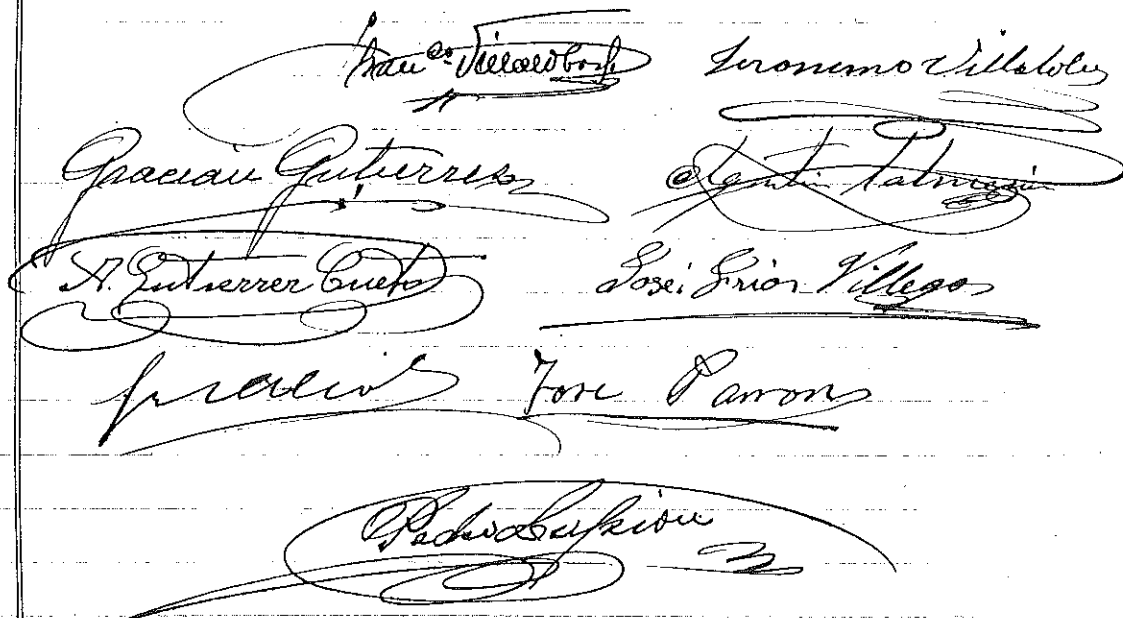 Franco Villalobos Geronimo Villalobos
Gracian Gutierrez Agustin Palmerin
A. Gutierrez Cueto José Frias Villegas
José Parron
Pedro